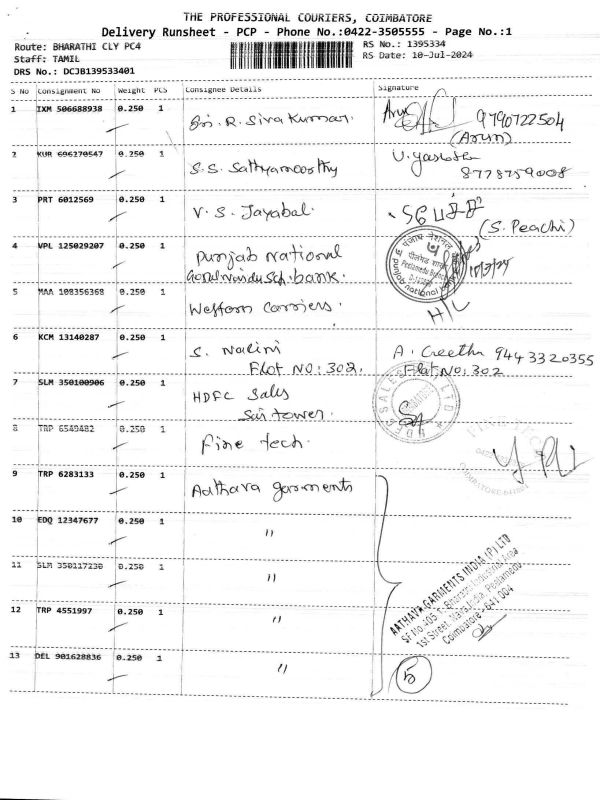 THE PROFESSIONAL COURIERS, COIMBATORE
Delivery Runsheet - PCP - Phone No.:0422-3505555 - Page No.:1
Route: BHARATHI CLY PC4
RS No.: 1395334
Staff: TAMIL
RS Date: 10-Jul-2024
DRS No.: DCJB139533401
S No Consignment No Weight PCS Consignee Details Signature
1 IXM 506688938 0.250 1 Sri. R. Siva Kumar. Arun 9790722504
(Arun)
2 KUR 696270547 0.250 1 S.S. Sathyamoorthy
8778759008
3 PRT 6012569 0.250 1 V. S. Jayabal.
(S. Peachi)
4 VPL 125029207 0.250 1 Punjab National
bank.
punjab national
5 MAA 108356368 0.250 1 Western carriers.
H/L
6 KCM 13140287 0.250 1 S. Nalini A. Geetha 9443320355
Flot NO: 302. Flat NO: 302
7 SLM 350100906 0.250 1 HDFC Sales
Sai tower.
8 TRP 6549482 0.250 1 Fine tech.
9 TRP 6283133 0.250 1 Aathava garments
10 EDQ 12347677 0.250 1 "
11 SLM 350117230 0.250 1 "
AATHAVA GARMENTS INDIA (P) LTD
Coimbatore - 641 004
12 TRP 4551997 0.250 1 "
13 DEL 901628836 0.250 1 "
5